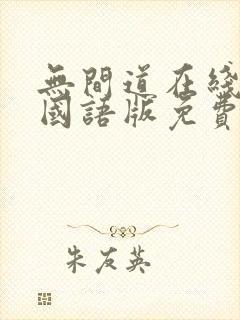 無間道在綫
國語版免費
朱友英